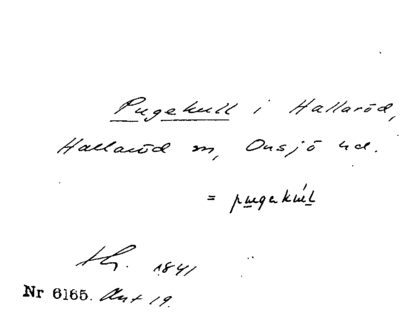 Pugekull i Hallaröd,
Hallaröd sn, Onsjö hd.
= pugekull
1841
Nr 6165. Ant 19.